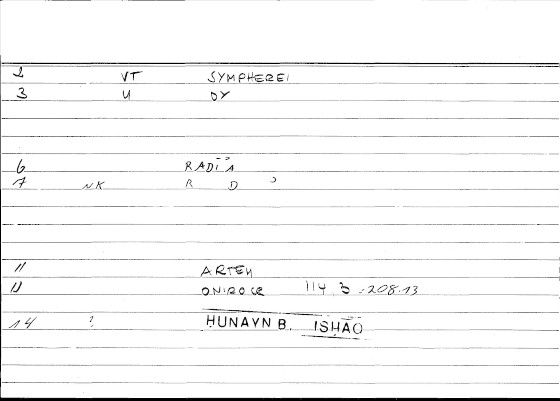 2 VT SYMPHEREI
3 U OY
6 RADĪ'A
7 N.K R D
11 ARTEM
12 ONIROCR 114, 3 = 208.13
14 ? ḤUNAYN B. ISḤĀQ